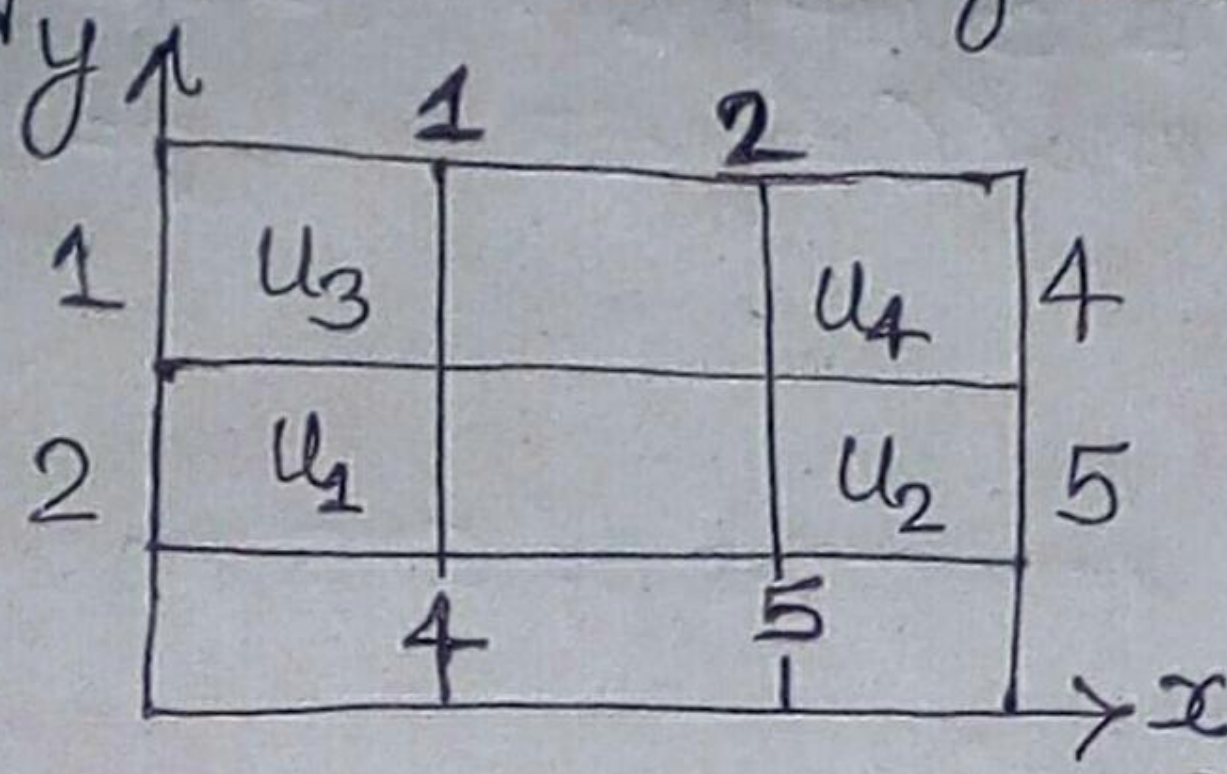 y
1 2
1 u3 u4 4
2 u1 u2 5
4 5
x